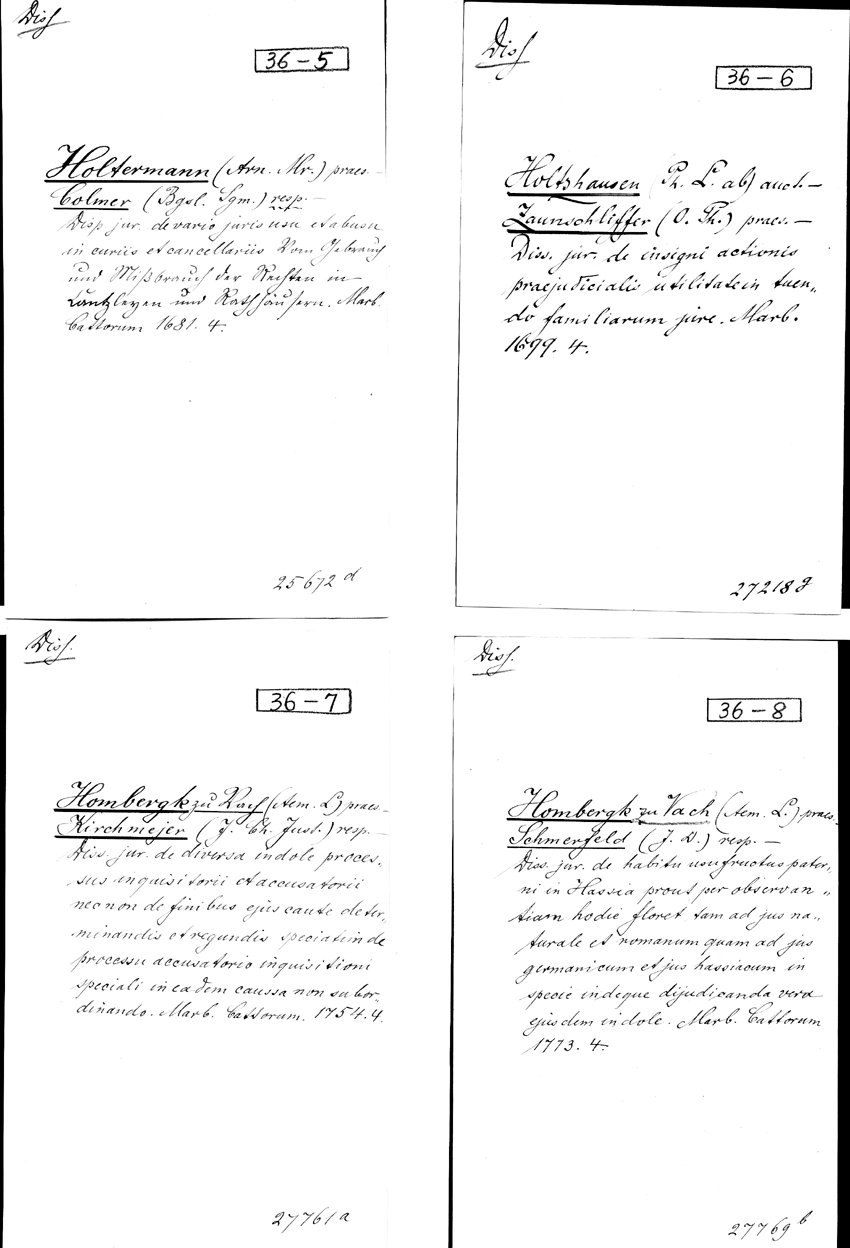 Diss.
36-5
Holtermann (Arn. Mr.) praes. —
Colmer (Bgsl. Sgm.) resp. —
Disp jur. de vario juris usu et abusu
in curiis et cancellariis Vom Gebrauch
und Mißbrauch der Rechten in
Cantzleyen und Rathhäusern. Marb.
Cattorum 1681. 4.
25672 d
Diss
36-6
Holtzhausen (Ph. L. ab) auct. —
Zaunschliffer (O. Ph.) praes. —
Diss. jur. de insigni actionis
praejudicialis utilitate in tuen„
do familiarum jure. Marb.
1699. 4.
27218 g
Diss.
36-7
Hombergk zu Vach (Aem. L) praes —
Kirchmejer (J. Ch. Just.) resp. —
Diss. jur. de diversa indole proces„
sus inquisitorii et accusatorii
nec non de finibus ejus caute deter„
minandis et regundis speciatim de
processu accusatorio inquisitioni
speciali in eadem caussa non subor„
dinando. Marb. Cattorum. 1754. 4.
27761 a
Diss.
36-8
Hombergk zu Vach (Aem. L.) praes.
Schmerfeld (J. D.) resp. —
Diss. jur. de habitu usufructus pater„
ni in Hassia prout per observan„
tiam hodie floret tam ad jus na„
turale et romanum quam ad jus
germanicum et jus hassiacum in
specie indeque dijudicanda vera
ejusdem indole. Marb. Cattorum
1773. 4.
27769 b